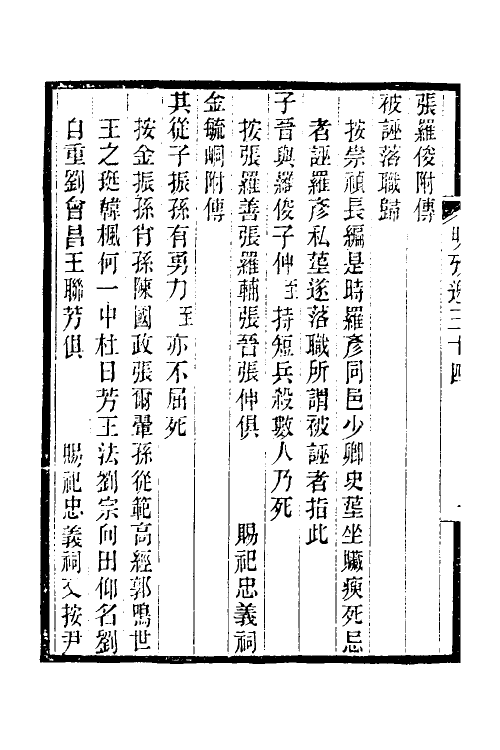 張羅俊附傳
被誣落職歸
按崇禎長編是時羅彥同邑少卿史𡌴坐贓瘐死忌
者誣羅彥私𡌴遂落職所謂被誣者指此
子晉與羅俊子伸至持短兵殺數人乃死
按張羅善張羅輔張晉張伸俱 賜祀忠義祠
金毓峒附傳
其從子振孫有勇力至亦不屈死
按金振孫肖孫陳國政張爾翬孫從範高經郭鳴世
王之珽韓楓何一中杜日芳王法劉宗向田仰名劉
自重劉會昌王聯芳俱 賜祀忠義祠又按尹
三十四